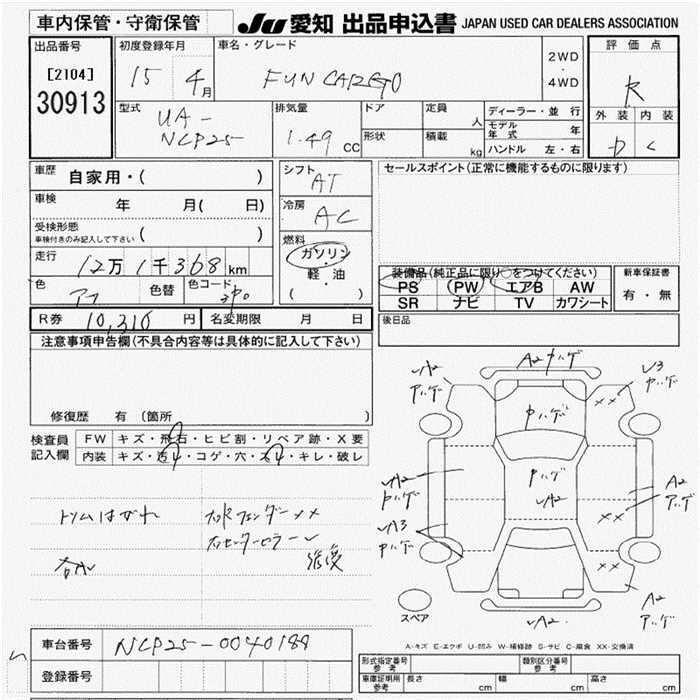 車内保管・守衛保管
JU 愛知 出品申込書 JAPAN USED CAR DEALERS ASSOCIATION
出品番号
[2104]
30913
初度登録年月
15 4月
車名・グレード
FUNCARGO
2WD
・
4WD
評価点
R
外装 内装
D C
型式
UA-
NCP25
排気量
1.49 CC
ドア
形状
定員
人
積載
kg
ディーラー・並行
モデル年式 年
ハンドル 左・右
車歴 自家用・( )
車検 年 月( 日)
受検形態
車検付きのみ記入して下さい ( )
走行 12万1千368km
色 色替 色コード
シフト AT
冷房 AC
燃料
ガソリン
・
軽・油
( )
セールスポイント(正常に機能するものに限ります)
装備品(純正品に限り○をつけてください)
PS PW エアB AW
SR ナビ TV カワシート
新車保証書
有・無
R券 10,310円 名変期限 月 日
後日品
注意事項申告欄(不具合内容等は具体的に記入して下さい)
修復歴 有 (箇所 )
検査員記入欄
FW キズ・飛石・ヒビ割・リペア跡・X要
内装 キズ・汚レ・コゲ・穴・スレ・キレ・破レ
トリムはがれ
A2 ヤハゲ
A2
アハゲ
U3
ヤハゲ
ヤハゲ
××
ヤハゲ
A2
A2
ヤハゲ
A2
アハゲ
××
A3
ヤハゲ
××
A2
A2
アハゲ
スペア
A-キズ E-エクボ U-凹み W-補修跡 S-サビ C-腐食 XX-交換済
車台番号 NCP25-0040188
登録番号
形式指定番号
参考
類別区分番号
参考
車庫証明用
参考
長さ cm 幅 cm 高さ cm